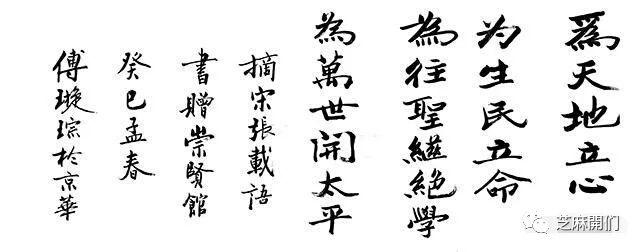 為天地立心
为生民立命
為往聖繼絕學
為萬世開太平
摘宋張載語
書贈崇賢館
癸巳孟春
傅璇琮於京華
芝麻開们